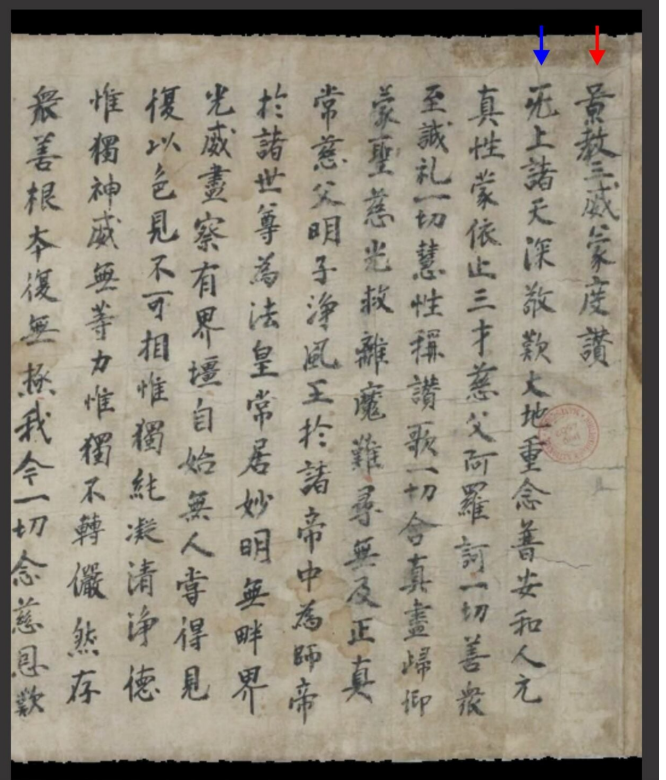 景教三威蒙度讃
无上諸天深敬歎大地重念普安和人元
真性蒙依止三才慈父阿羅訶一切善衆
至誠礼一切慧性稱讃歌一切含真盡歸仰
蒙聖慈光救離魔難尋無及正真
常慈父明子淨風王於諸帝中為師帝
於諸世尊為法皇常居妙明無畔界
光威盡察有界壃自始無人嘗得見
復以色見不可相惟獨純凝清淨德
惟獨神威無等力惟獨不轉儼然存
衆善根本復無極我今一切念慈恩歎